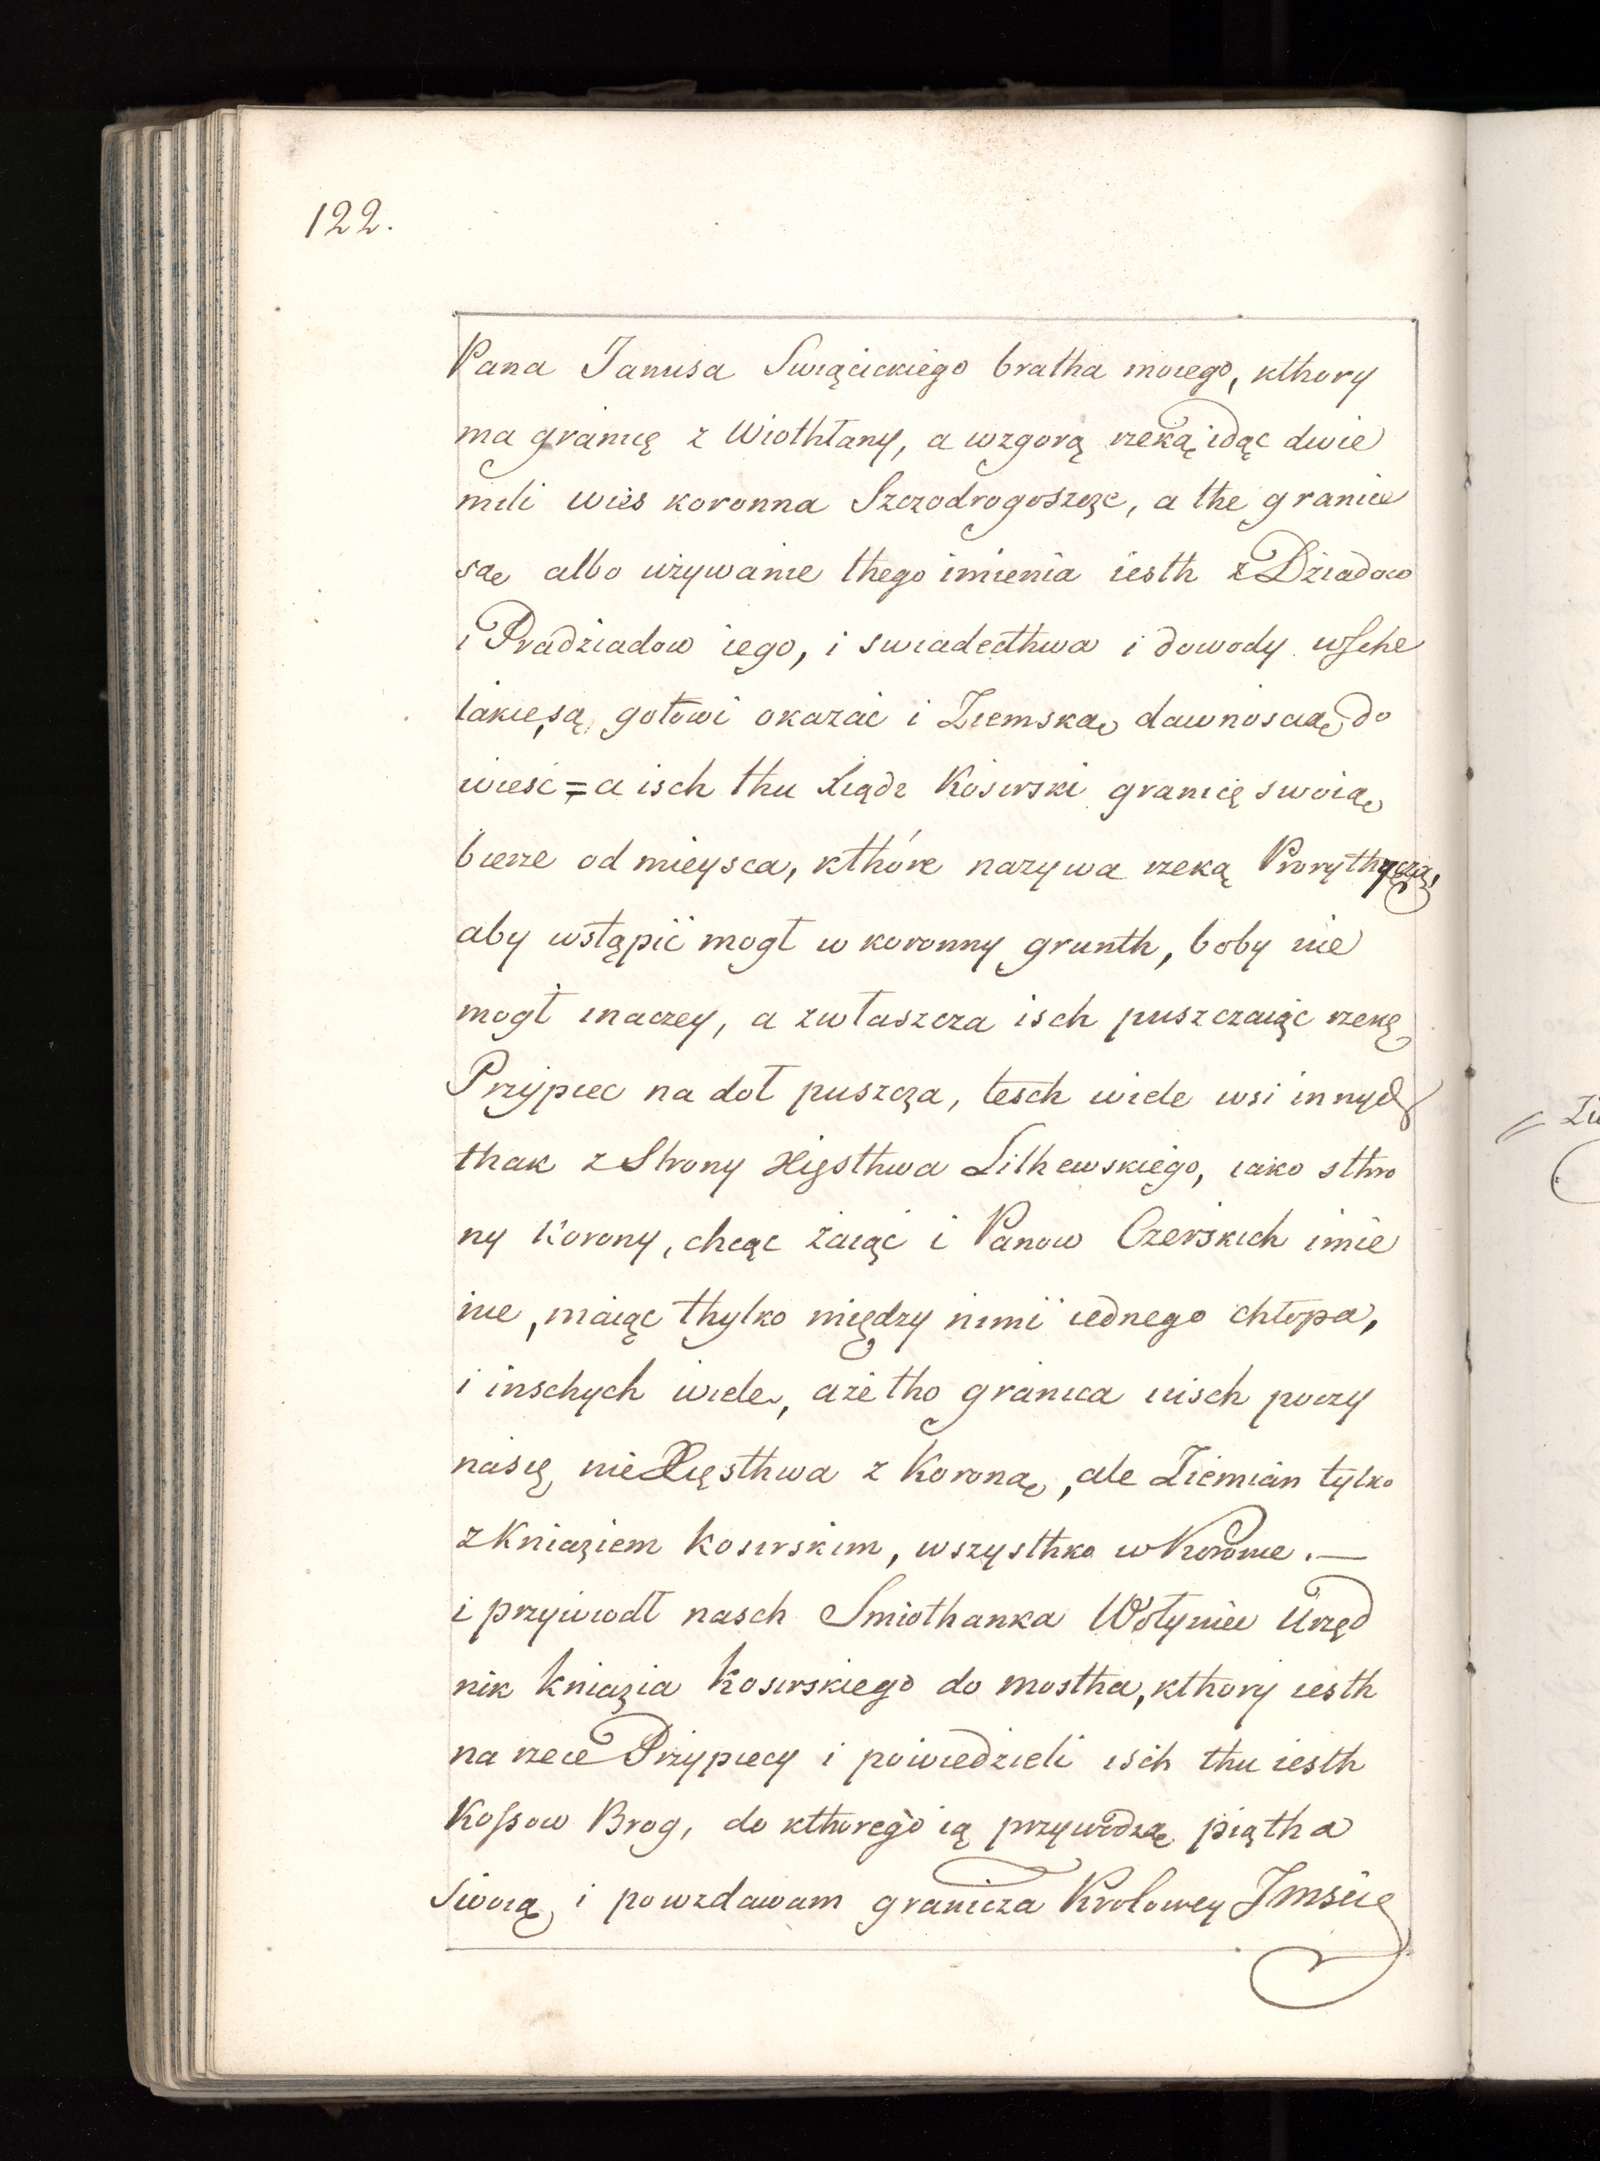 122.
Pana Janusa Swiącickiego bratha moiego, kthory
ma granicę z Wiothłany, a wzgorą rzeką idąc dwie
mili wies koronna Szczodrogoszcze, a the granice
są albo używanie thego imienia iesth z Dziadow
i Pradziadow iego, i swiadecthwa i dowody wsche
lakie są, gotowi okazać i Ziemską dawnoscią do
wieść = a isch thu Xiądz Kosirski granicę swoią
bierze od mieysca, kthóre nazywa rzeką Prorythyczą,
aby wstąpić mogł w koronny grunth, boby nie
mogł inaczey, a zwłaszcza isch puszczaiąc rzekę
Przypiec na doł puszcza, tesch wiele wsi innych
thak z Strony Xięsthwa Lithewskiego, iako sthro
ny Korony, chcąc zaiąć i Panow Czerskich imie
nie, maiąc thylko między nimi iednego chłopa,
i inschych wiele, aże tho granica nisch poczy
nasię nie Xięsthwa z Koroną, ale Ziemian tylko
z Kniaziem Kosirskim, wszysthko w Koronie. —
i przywiodł nasch Smiothanka Wołyniec Urzęd
nik Kniazia Kosirskiego do mostha, kthory iesth
na rzece Przypiecy i powiedzieli isch thu iesth
Kossow Brog, do kthorego ią przywodzą piątha
Swoią i powzdawam granicza Krolowey Jmście